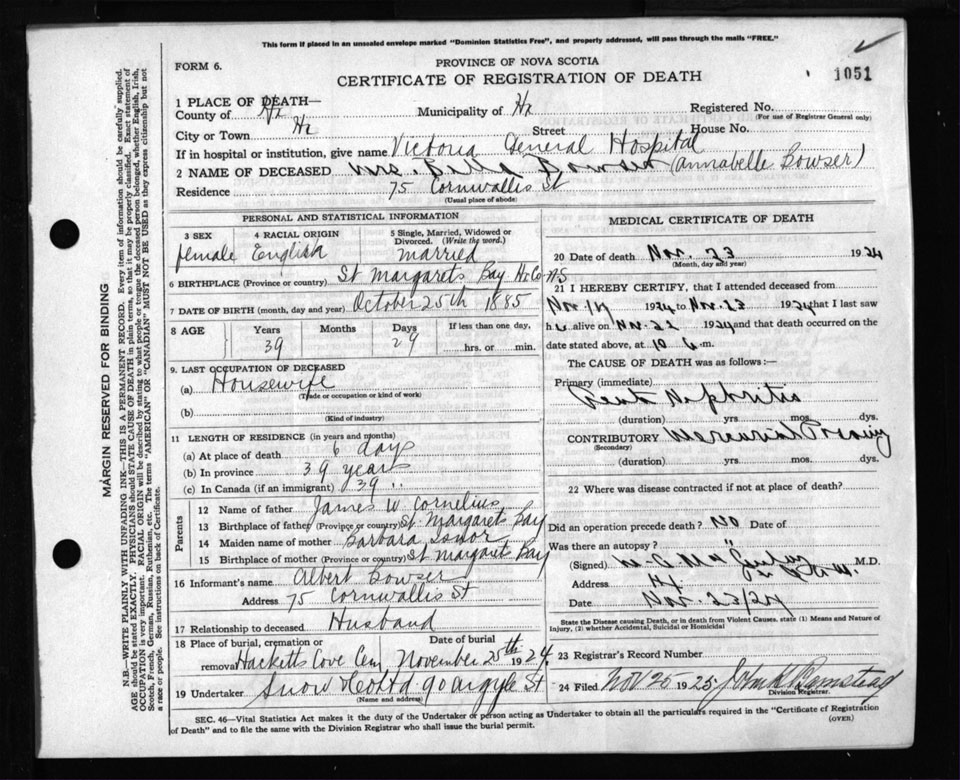 This form if placed in an unsealed envelope marked "Dominion Statistics Free", and properly addressed, will pass through the mails "FREE."
FORM 6.
PROVINCE OF NOVA SCOTIA
CERTIFICATE OF REGISTRATION OF DEATH
1051
1 PLACE OF DEATH—
County of Hx Municipality of Hx Registered No.
(For use of Registrar General only)
City or Town Hx Street House No.
If in hospital or institution, give name Victoria General Hospital
2 NAME OF DECEASED Mrs. Bella Bowser (Annabelle Bowser)
Residence 75 Cornwallis St
(Usual place of abode)
PERSONAL AND STATISTICAL INFORMATION
3 SEX female
4 RACIAL ORIGIN English
5 Single, Married, Widowed or Divorced. (Write the word.) married
6 BIRTHPLACE (Province or country) St Margarets Bay Hx Co N.S
7 DATE OF BIRTH (month, day and year) October 25th 1885
8 AGE Years 39 Months Days 29 If less than one day, hrs. or min.
9. LAST OCCUPATION OF DECEASED
(a) Housewife
(Trade or occupation or kind of work)
(b)
(Kind of industry)
11 LENGTH OF RESIDENCE (in years and months)
(a) At place of death 6 days
(b) In province 39 years
(c) In Canada (if an immigrant) 39 "
Parents
12 Name of father James W Cornelius
13 Birthplace of father (Province or country) St. Margarets Bay
14 Maiden name of mother Barbara
15 Birthplace of mother (Province or country) St Margaret Bay
16 Informant's name Albert Bowser
Address 75 Cornwallis St
17 Relationship to deceased Husband
18 Place of burial, cremation or removal Hacketts Cove Cem Date of burial November 25th 1924
19 Undertaker Snow & Co Ltd 90 Argyle St
(Name and address)
MEDICAL CERTIFICATE OF DEATH
20 Date of death Nov. 23 1924
(Month, day and year)
21 I HEREBY CERTIFY, that I attended deceased from
Nov 17 1924 to Nov. 23 1924 that I last saw
h alive on Nov. 22 1924 and that death occurred on
date stated above, at 10 m.
The CAUSE OF DEATH was as follows:—
Primary (immediate)
Nephritis
(duration) yrs. mos. dys.
CONTRIBUTORY Mercurial
(Secondary)
(duration) yrs. mos. dys.
22 Where was disease contracted if not at place of death?
Did an operation precede death? No Date of
Was there an autopsy? "
(Signed) M.D.
Address Hx
Date Nov. 23/24
State the Disease causing Death, or in death from Violent Causes, state (1) Means and Nature of Injury, (2) whether Accidental, Suicidal or Homicidal
23 Registrar's Record Number
24 Filed Nov 25 1925 John
Division Registrar.
SEC. 46—Vital Statistics Act makes it the duty of the Undertaker or person acting as Undertaker to obtain all the particulars required in the "Certificate of Registration
of Death" and to file the same with the Division Registrar who shall issue the burial permit.
(OVER)
MARGIN RESERVED FOR BINDING
N.B.—WRITE PLAINLY WITH UNFADING INK—THIS IS A PERMANENT RECORD. Every item of information should be carefully supplied.
AGE should be stated EXACTLY. PHYSICIANS should STATE CAUSE OF DEATH in plain terms, so that it may be properly classified. Exact statement of
OCCUPATION is very important. RACIAL ORIGIN will be described by stating to what people or tongue the deceased person belonged, whether English, Irish,
Scotch, French, German, Russian, Ruthenian, etc. The terms "AMERICAN" OR "CANADIAN" MUST NOT BE USED as they express citizenship but not
a race or people. See instructions on back of Certificate.